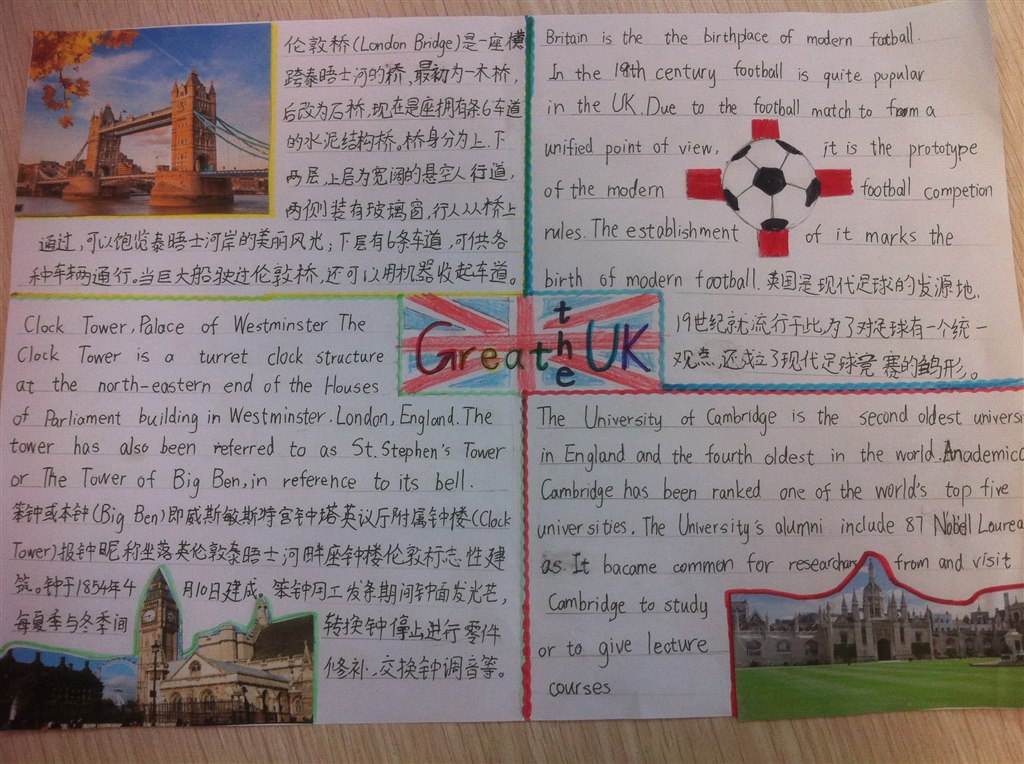 伦敦桥(London Bridge)是一座横
跨泰晤士河的桥,最初为一木桥,
后改为石桥,现在是座拥有条6车道
的水泥结构桥。桥身分为上.下
两层,上层为宽阔的悬空人行道,
两侧装有玻璃窗,行人从桥上
通过,可以饱览泰晤士河岸的美丽风光;下层有6条车道,可供各
种车辆通行。当巨大船驶过伦敦桥,还可以用机器收起车道。
Britain is the the birthplace of modern football.
In the 19th century football is quite pupular
in the UK. Due to the football match to from a
unified point of view, it is the prototype
of the modern football competion
rules. The establishment of it marks the
birth of modern football. 英国是现代足球的发源地,
19世纪就流行于此为了对足球有一个统一
观点,还成立了现代足球竞赛的雏形。
Great the UK
Clock Tower, Palace of Westminster The
Clock Tower is a turret clock structure
at the north-eastern end of the Houses
of Parliament building in Westminster, London, England. The
tower has also been referred to as St. Stephen's Tower
or The Tower of Big Ben, in reference to its bell.
笨钟或本钟(Big Ben)即威斯敏斯特宫钟塔英议厅附属钟楼(Clock
Tower)报钟昵称坐落英伦敦泰晤士河畔座钟楼伦敦标志性建
筑。钟于1854年4月10日建成。笨钟用工发条期间钟面发光芒,
每夏季与冬季间转换钟停止进行零件
修补、交换钟调音等。
The University of Cambridge is the second oldest universi
in England and the fourth oldest in the world. Anademica
Cambridge has been ranked one of the world's top five
universities. The University's alumni include 87 Nobell Laurea
as It bacame common for researchars from and visit
Cambridge to study
or to give leoture
courses